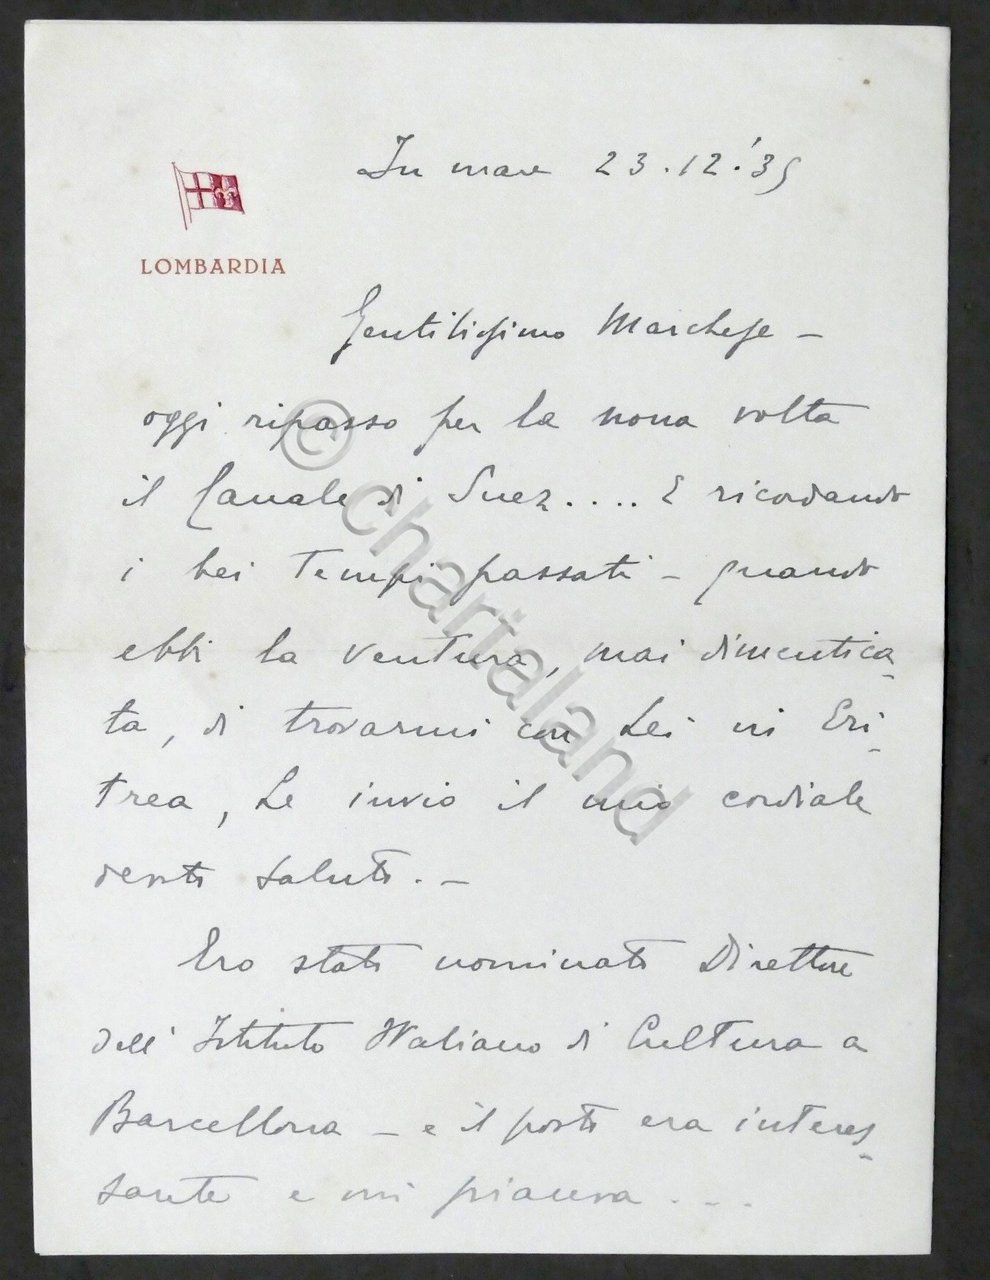 In mare 23.12.'35
LOMBARDIA
Gentilissimo Marchese -
oggi ripasso per la nona volta
il Canale di Suez.... E ricordando
i bei tempi passati - quando
ebbi la ventura, mai dimentica-
ta, di trovarmi con Lei in Eri-
trea, Le invio il mio cordiale
devoto saluto. -
Ero stato nominato Direttore
dell'Istituto Italiano di Cultura a
Barcellona - e il posto era interes-
sante e mi piaceva....
© chartaland